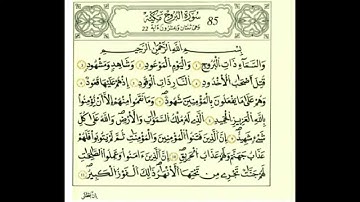 سُورَةُ البُرُوجِ مَكِّيَّة
85
بِسْمِ اللَّهِ الرَّحْمَٰنِ الرَّحِيمِ
وَالسَّمَاءِ ذَاتِ الْبُرُوجِ ١ وَالْيَوْمِ الْمَوْعُودِ ٢ وَشَاهِدٍ وَمَشْهُودٍ ٣
قُتِلَ أَصْحَابُ الْأُخْدُودِ ٤ النَّارِ ذَاتِ الْوَقُودِ ٥ إِذْ هُمْ عَلَيْهَا قُعُودٌ ٦
وَهُمْ عَلَىٰ مَا يَفْعَلُونَ بِالْمُؤْمِنِينَ شُهُودٌ ٧ وَمَا نَقَمُوا مِنْهُمْ إِلَّا أَنْ يُؤْمِنُوا
بِاللَّهِ الْعَزِيزِ الْحَمِيدِ ٨ الَّذِي لَهُ مُلْكُ السَّمَاوَاتِ وَالْأَرْضِ وَاللَّهُ عَلَىٰ كُلِّ
شَيْءٍ شَهِيدٌ ٩ إِنَّ الَّذِينَ فَتَنُوا الْمُؤْمِنِينَ وَالْمُؤْمِنَاتِ ثُمَّ لَمْ يَتُوبُوا فَلَهُمْ
عَذَابُ جَهَنَّمَ وَلَهُمْ عَذَابُ الْحَرِيقِ ١٠ إِنَّ الَّذِينَ آمَنُوا وَعَمِلُوا الصَّالِحَاتِ
لَهُمْ جَنَّاتٌ تَجْرِي مِنْ تَحْتِهَا الْأَنْهَارُ ذَٰلِكَ الْفَوْزُ الْكَبِيرُ ١١